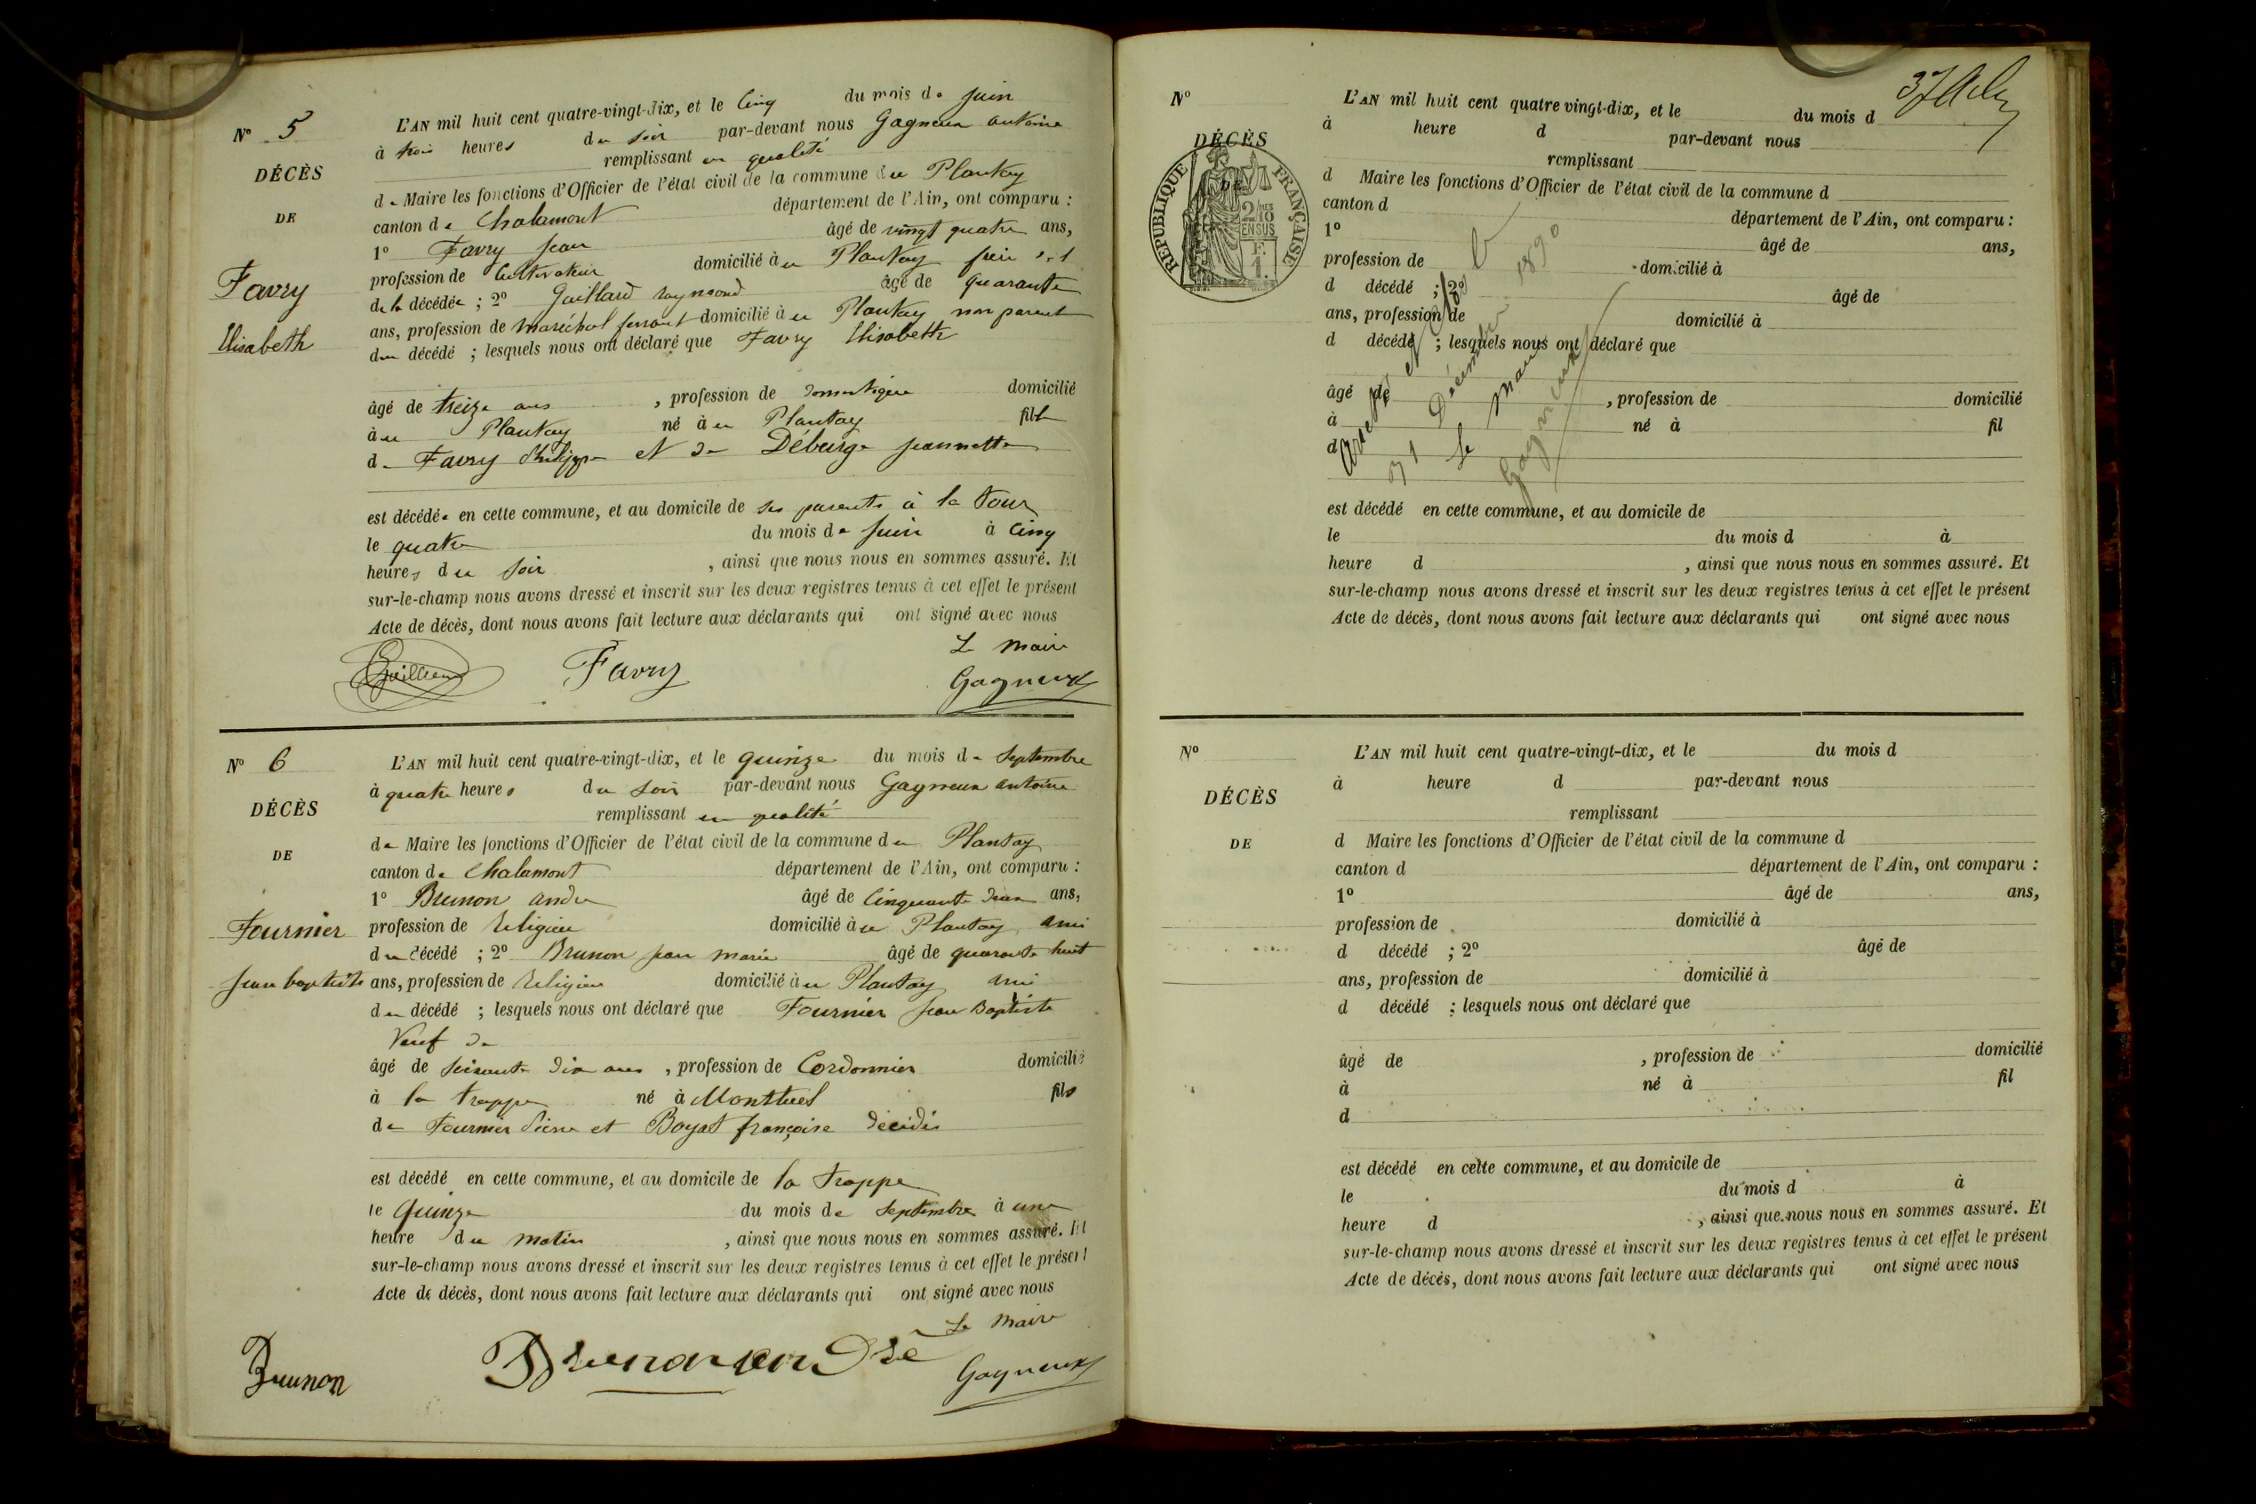 Nº 5
DÉCÈS
DE
Favry
Elisabeth
L'AN mil huit cent quatre-vingt-dix, et le Cinq du mois de Juin
à trois heures du soir par-devant nous Gagneux antoine
remplissant en qualité
de Maire les fonctions d'Officier de l'état civil de la commune du Plantay
canton de Chalamont département de l'Ain, ont comparu :
1º Favry Jean âgé de vingt quatre ans,
profession de Cultivateur domicilié au Plantay
de la décédée ; 2º Gaillard raymond âgé de quarante
ans, profession de maréchal ferrant domicilié au Plantay non parent
du décédé ; lesquels nous ont déclaré que Favry Elisabeth
âgé de treize ans , profession de domestique domicilié
au Plantay né au Plantay fille
de Favry Philippe et de Débarge Jeannette
est décédée en cette commune, et au domicile de ses parents à la tour
le quatre du mois de Juin à cinq
heures du soir , ainsi que nous nous en sommes assuré. Et
sur-le-champ nous avons dressé et inscrit sur les deux registres tenus à cet effet le présent
Acte de décès, dont nous avons fait lecture aux déclarants qui ont signé avec nous
Le Maire
Favry Gagneux
Nº 6
DÉCÈS
DE
Fournier
Jean baptiste
L'AN mil huit cent quatre-vingt-dix, et le quinze du mois de Septembre
à quatre heures du soir par-devant nous Gagneux antoine
remplissant en qualité
de Maire les fonctions d'Officier de l'état civil de la commune du Plantay
canton de Chalamont département de l'Ain, ont comparu :
1º Brunon andré âgé de Cinquante deux ans,
profession de Religieux domicilié au Plantay ami
du décédé ; 2º Brunon jean marie âgé de quarante huit
ans, profession de Religieux domicilié au Plantay ami
du décédé ; lesquels nous ont déclaré que Fournier Jean Baptiste
Veuf de
âgé de soixante dix ans , profession de Cordonnier domicilié
à la trappe né à Montluel fils
de Fournier Pierre et Boyat françoise décédés
est décédé en cette commune, et au domicile de la trappe
le Quinze du mois de Septembre à une
heure du matin , ainsi que nous nous en sommes assuré. Et
sur-le-champ nous avons dressé et inscrit sur les deux registres tenus à cet effet le présent
Acte de décès, dont nous avons fait lecture aux déclarants qui ont signé avec nous
Le Maire
Brunon Brunon andré Gagneux
37
Nº
DÉCÈS
DE
RÉPUBLIQUE FRANÇAISE
2/10 EN SUS
F. 1.
L'AN mil huit cent quatre vingt-dix, et le du mois d
à heure d par-devant nous
remplissant
d Maire les fonctions d'Officier de l'état civil de la commune d
canton d département de l'Ain, ont comparu :
1º âgé de ans,
profession de domicilié à
d décédé ; 2º âgé de
ans, profession de domicilié à
d décédé ; lesquels nous ont déclaré que
âgé de , profession de domicilié
à né à fil
d
est décédé en cette commune, et au domicile de
le du mois d à
heure d , ainsi que nous nous en sommes assuré. Et
sur-le-champ nous avons dressé et inscrit sur les deux registres tenus à cet effet le présent
Acte de décès, dont nous avons fait lecture aux déclarants qui ont signé avec nous
31 Décembre 1890
Le Maire
Gagneux
Nº
DÉCÈS
DE
L'AN mil huit cent quatre-vingt-dix, et le du mois d
à heure d par-devant nous
remplissant
d Maire les fonctions d'Officier de l'état civil de la commune d
canton d département de l'Ain, ont comparu :
1º âgé de ans,
profession de domicilié à
d décédé ; 2º âgé de
ans, profession de domicilié à
d décédé ; lesquels nous ont déclaré que
âgé de , profession de domicilié
à né à fil
d
est décédé en cette commune, et au domicile de
le du mois d à
heure d , ainsi que nous nous en sommes assuré. Et
sur-le-champ nous avons dressé et inscrit sur les deux registres tenus à cet effet le présent
Acte de décès, dont nous avons fait lecture aux déclarants qui ont signé avec nous